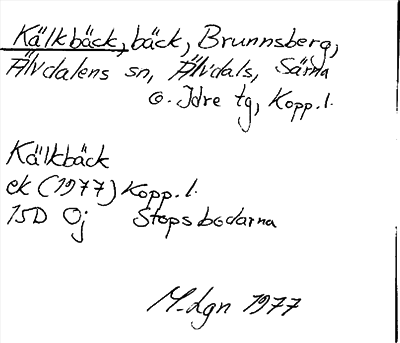 Kälkbäck, bäck, Brunnsberg,
Älvdalens sn, Älvdals, Särna
o. Idre tg, Kopp.l.
Kälkbäck
ek (1977) Kopp.l.
15D Oj Stopsbodarna
M-dgn 1977